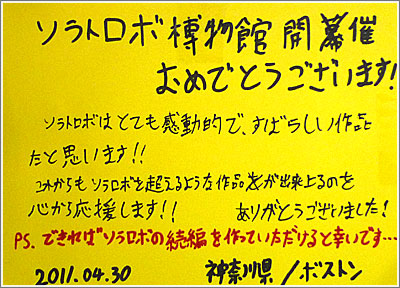 ソラトロボ博物館開幕催
おめでとうございます!
ソラトロボはとても感動的で、すばらしい作品
だと思います!!
これからもソラロボを超えるような作品が出来上るのを
心から応援します!! ありがとうございました!
PS. できればソラロボの続編を作っていただけると幸いです…
2011.04.30 神奈川県/ボストン